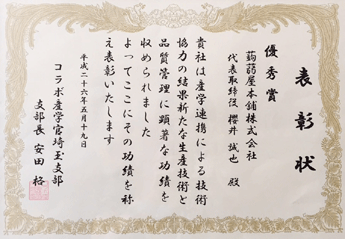 表彰状
優秀賞
蒟蒻屋本舗株式会社
代表取締役 櫻井誠也 殿
貴社は産学連携による技術
協力の結果新たな生産技術と
品質管理に顕著な功績を
収められました
よってここにその功績を称
え表彰いたします
平成二十六年五月十九日
コラボ産学官埼玉支部
支部長 安田 格